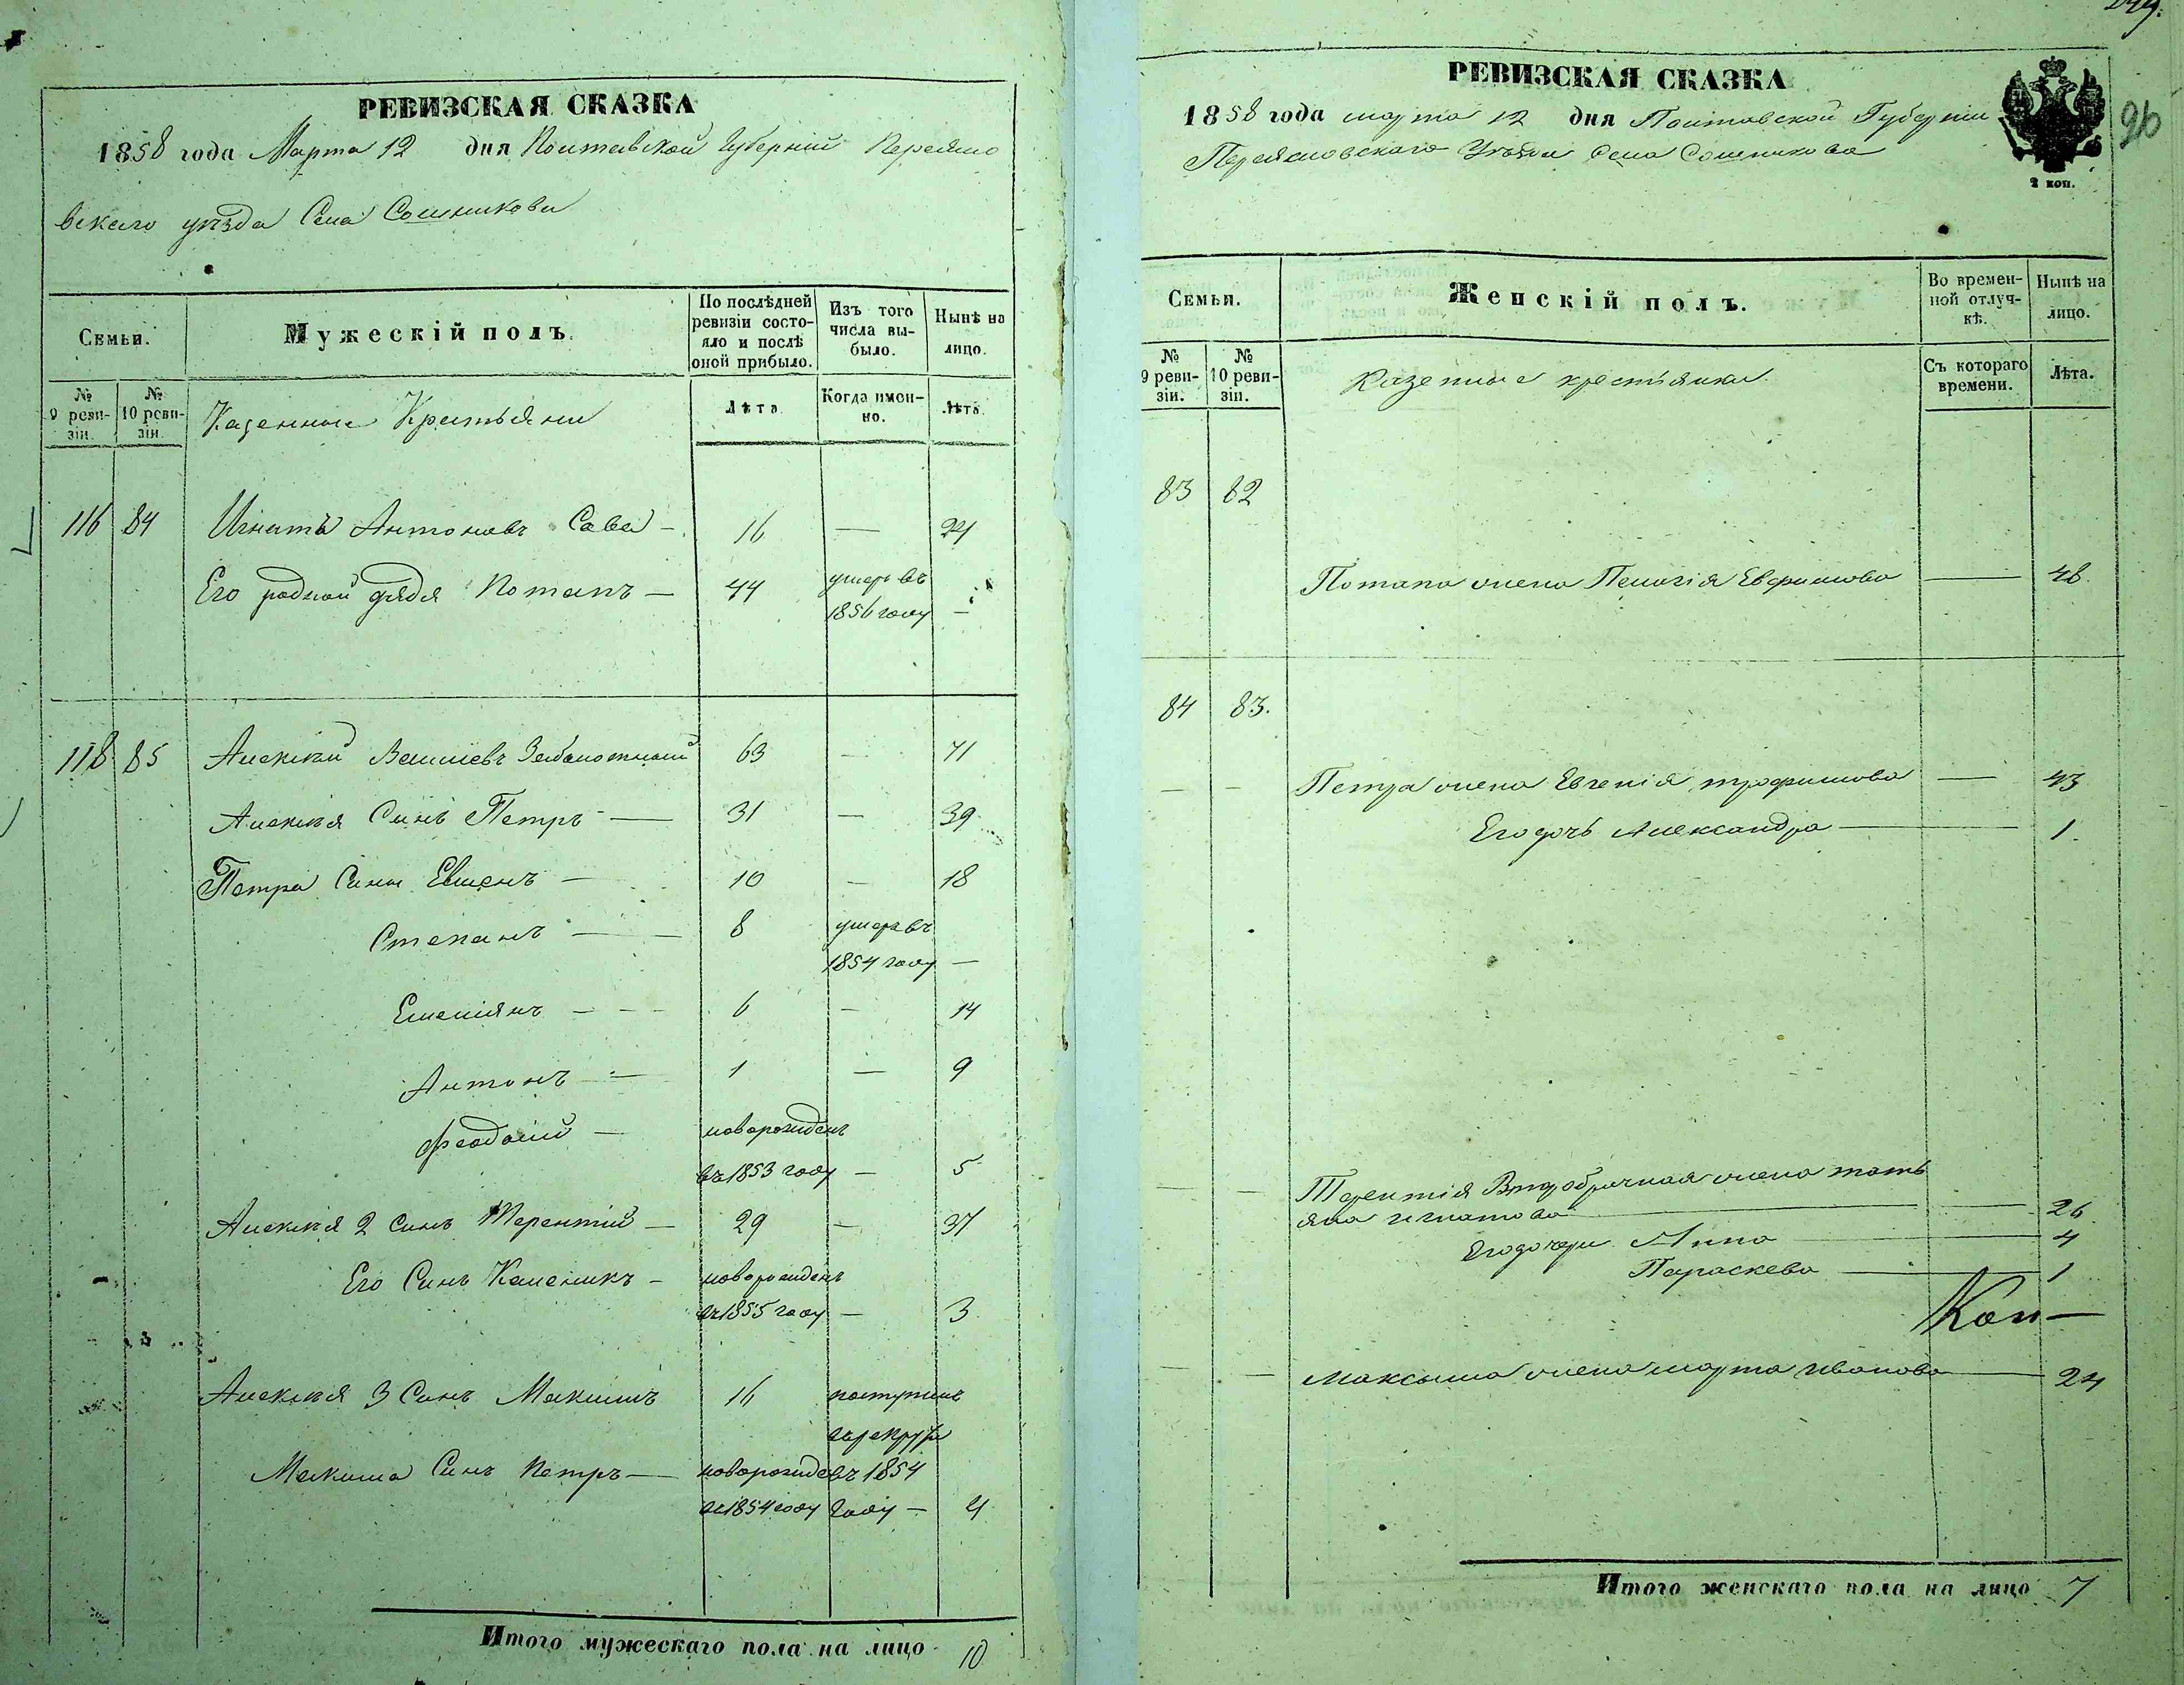 РЕВИЗСКАЯ СКАЗКА
1858 года Марта 12 дня Полтавской Губерний Переясло
вскаго уѣзда Села Сошникова
Семьи.
Мужескій полъ.
По послѣдней ревизіи состояло и послѣ оной прибыло.
Изъ того числа выбыло.
Нынѣ на лицо.
№ 9 ревизіи.
№ 10 ревизіи.
Казенные Крестьяни
Лѣта.
Когда именно.
Лѣта.
116 84 Игнатъ Антоновъ Сава — 16 — 24
Его родной дядя Потапъ — 44 умеръ въ
1856 году —
118 85 Алексѣй Заболотный 63 — 71
Алексѣя Синъ Петръ — 31 — 39
Петра Сины Евменъ — 10 — 18
Степанъ — 8 умеръ въ
1854 году —
Емелiянъ — 6 — 14
Антонъ — 1 — 9
Феодосий — новорожденъ
въ 1853 году — 5
Алексѣя 2 Синъ Терентий — 29 — 37
Его Синъ Каленикъ — новорожденъ
въ 1855 году — 3
Алексѣя 3 Синъ Максимъ 16 поступилъ
в рекруты
Максима Синъ Петръ — новорожде въ 1854
въ 1854 году году — 4
Итого мужескаго пола на лицо 10
РЕВИЗСКАЯ СКАЗКА
1858 года марта 12 дня Полтавской Губерніи
Переясловскаго Уѣзда Села Сошникова
2 коп.
26
Семьи.
Женскій полъ.
Во временной отлучкѣ.
Нынѣ на лицо.
№ 9 ревизіи.
№ 10 ревизіи.
Казенные крестьянки.
Съ котораго времени.
Лѣта.
83 82
Потапа жена Пелагія Евфимова — 48.
84 83.
— — Петра жена Евгенія трофимова — 43
Его дочь Александра — 1.
— — Терентія Второбрачная жена тать
яна игнатова — 26
Его дочери Анна — 4
Параскева — 1
Кол—
— — Максыма жена марта иванова — 24
Итого женскаго пола на лицо 7